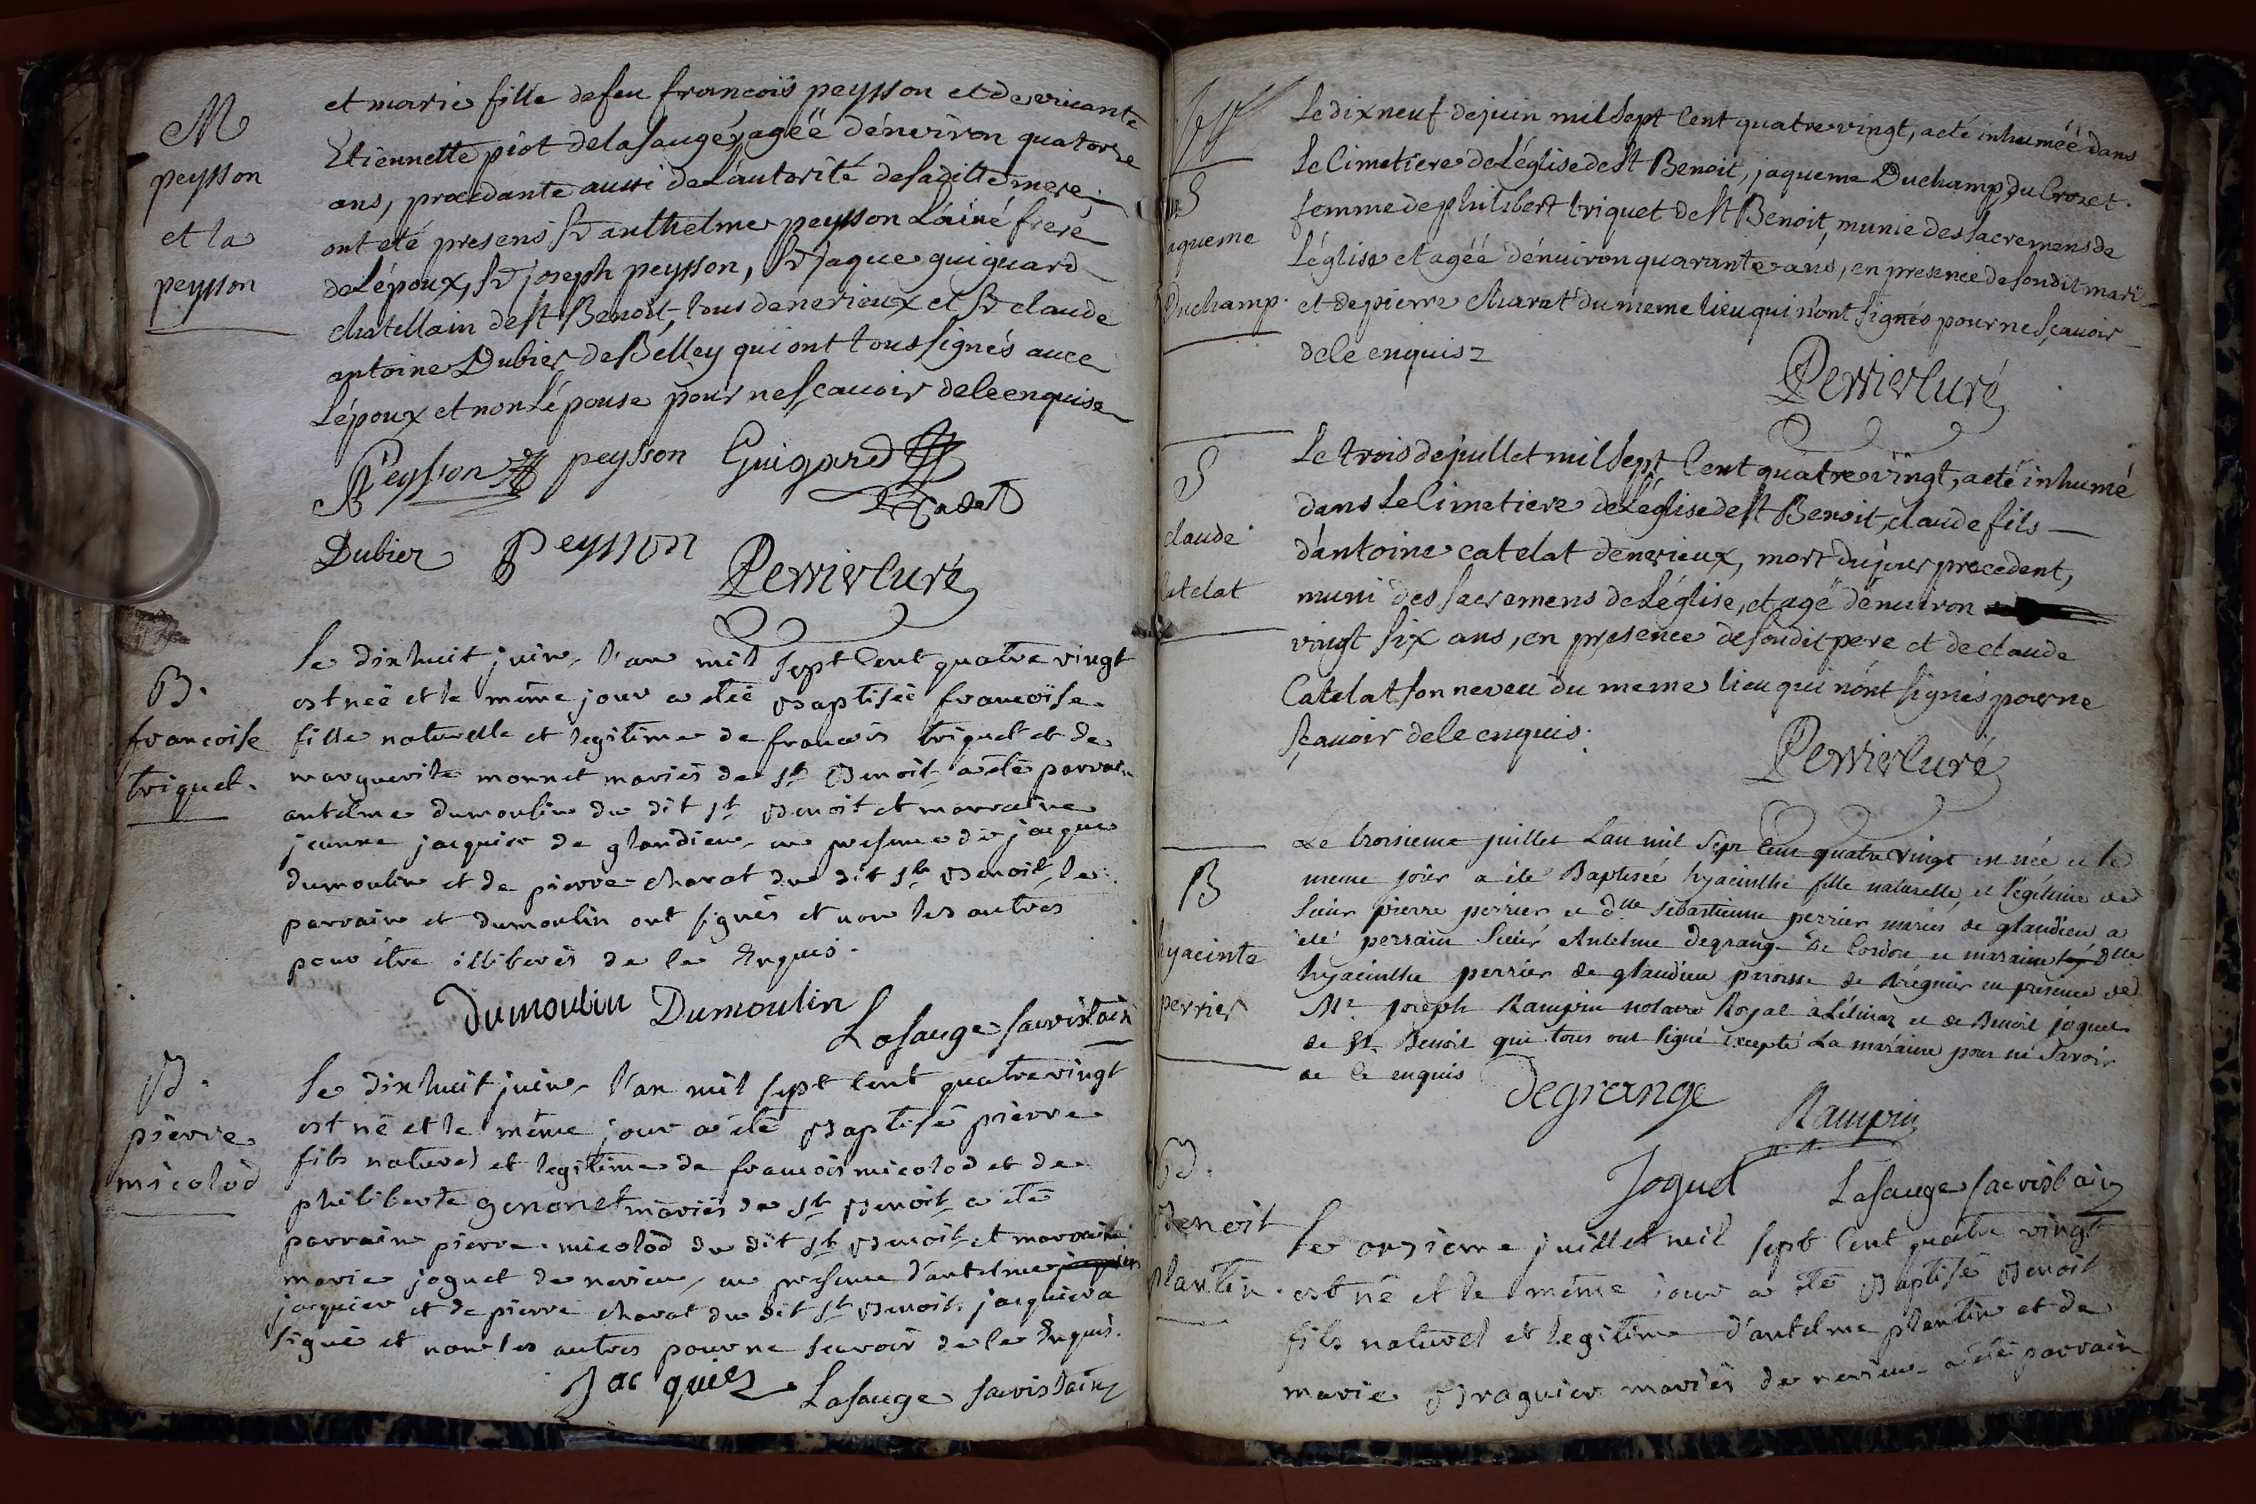 M
peysson
et la
peysson
et marie fille defeu francois peysson et de vivante
Etiennette piot delasauge, agéë dénviron quatorze
ans, procedante aussi de L'autorité de sa ditte mere.
ont eté presens Sr anthelme peysson L'ainé frere
de L'époux, Sr joseph peysson, Sr jaque guiguard
chatellain de st Benoit, tous denerieux et Sr claude
antoine Dubier de Belley qui ont tous signés avec
L'époux et non L'épouse pour ne sçavoir de le enquise
Peysson peysson Guigard
Cadet
Dubier Peysson
Perrier Curé
B.
francoise
triquet.
le dix huit juin, l'an mil sept Cent quatre vingt
est neé et le même jour a étée Baptisée francoise
fille naturelle et legitime de francois triquet et de
marguerite monnet mariés de st Benoit a été parrain
antelme dumoulin du dit st Benoit et marraine
jeanne jacquier de glandieu, en presence de jacque
dumoulin et de pierre charat du dit st Benoit, le
parrain et dumoulin ont signés et non les autres
pour être illiterés de le Enquis.
Dumoulin Dumoulin
Lasauge sacristain
B.
pierre
micolod
le dix huit juin, l'an mil sept Cent quatre vingt
est né et le même jour a été Baptisé pierre
fils naturel et legitime de francois micolod et de
philiberte genonet mariés de st Benoit a été
parrain pierre micolod du dit st Benoit et marraine
marie joguet de nerieu, en presence d'antelme jacquier
jacquier et de pierre charat du dit st Benoit, jacquier a
signé et non les autres pour ne scavoir de le Enquis.
Jacquier Lasauge sacristain
S
jaqueme
Duchamp.
Le dix neuf de juin mil Sept Cent quatre vingt, a eté inhuméë dans
Le Cimetiere de L'église de st Benoit, jaqueme Duchamp du Crozet.
femme de philibert triquet de st Benoit, munie des sacremens de
L'église et agéë dénviron quarante ans, en presence de son dit mari
et de pierre charat du meme lieu qui n'ont signés pour ne sçavoir
de le enquis
Perrier Curé
S
claude
Catelat
Le trois de juillet mil Sept Cent quatre vingt, a eté inhumé
dans Le Cimetiere de L'église de st Benoit, claude fils
d'antoine catelat de nerieux, mort du jour precedent,
muni des sacremens de L'église, et agé dénviron
vingt six ans, en presence de son dit pere et de claude
Catelat son neveu du meme lieu qui n'ont signés pour ne
sçavoir de le enquis.
Perrier Curé
B
hyacinte
perrier
Le troisieme juillet Lan mil Sept Cent quatre vingt est née et le
meme jour a été Baptisée hyacinthe fille naturelle et legitime de
Sieur pierre perrier et dlle sebastienne perrier mariés de glandieu a
été perrain Sieur Antelme degrange de Cordon et maraine dlle
hyacinthe perrier de glandieu paroisse de Brégnier en presence de
Mr. joseph Rampin notaire Royal à L'huis et de Benoit joguet
de St Benoit qui tous ont signé excepté La maraine pour ne Savoir
de le enquis
Degrange
Rampin
Joguet Lasauge sacristain
B.
Benoit
plantin.
le onzieme juillet mil sept Cent quatre vingt
est né et le même jour a été Baptisé Benoit
fils naturel et legitime d'antelme plantin et de
marie Braguier mariés de nerieu a été parrain